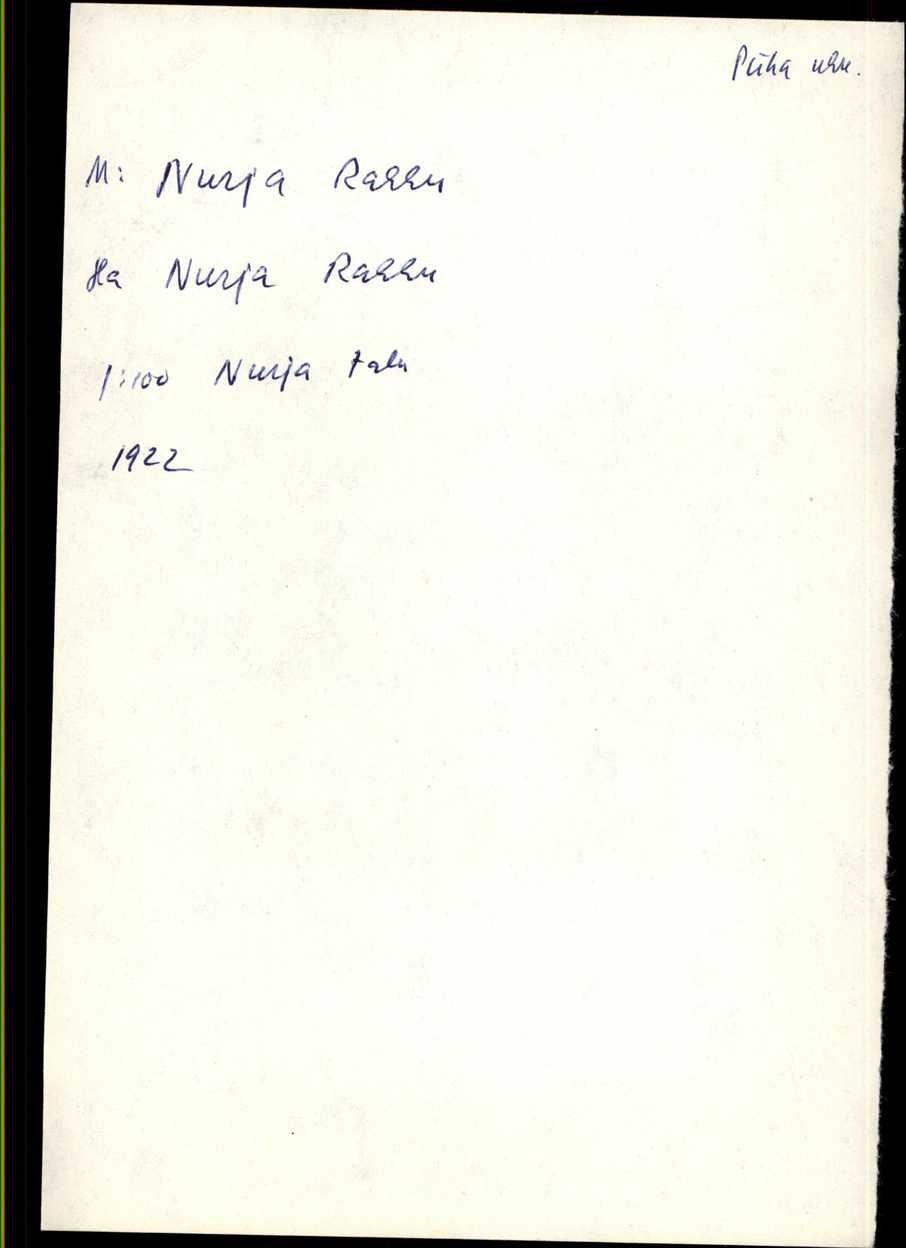 Püha khk.
M: Nurja Rakku
Ha Nurja Rakku
1:100 Nurja talu
1922